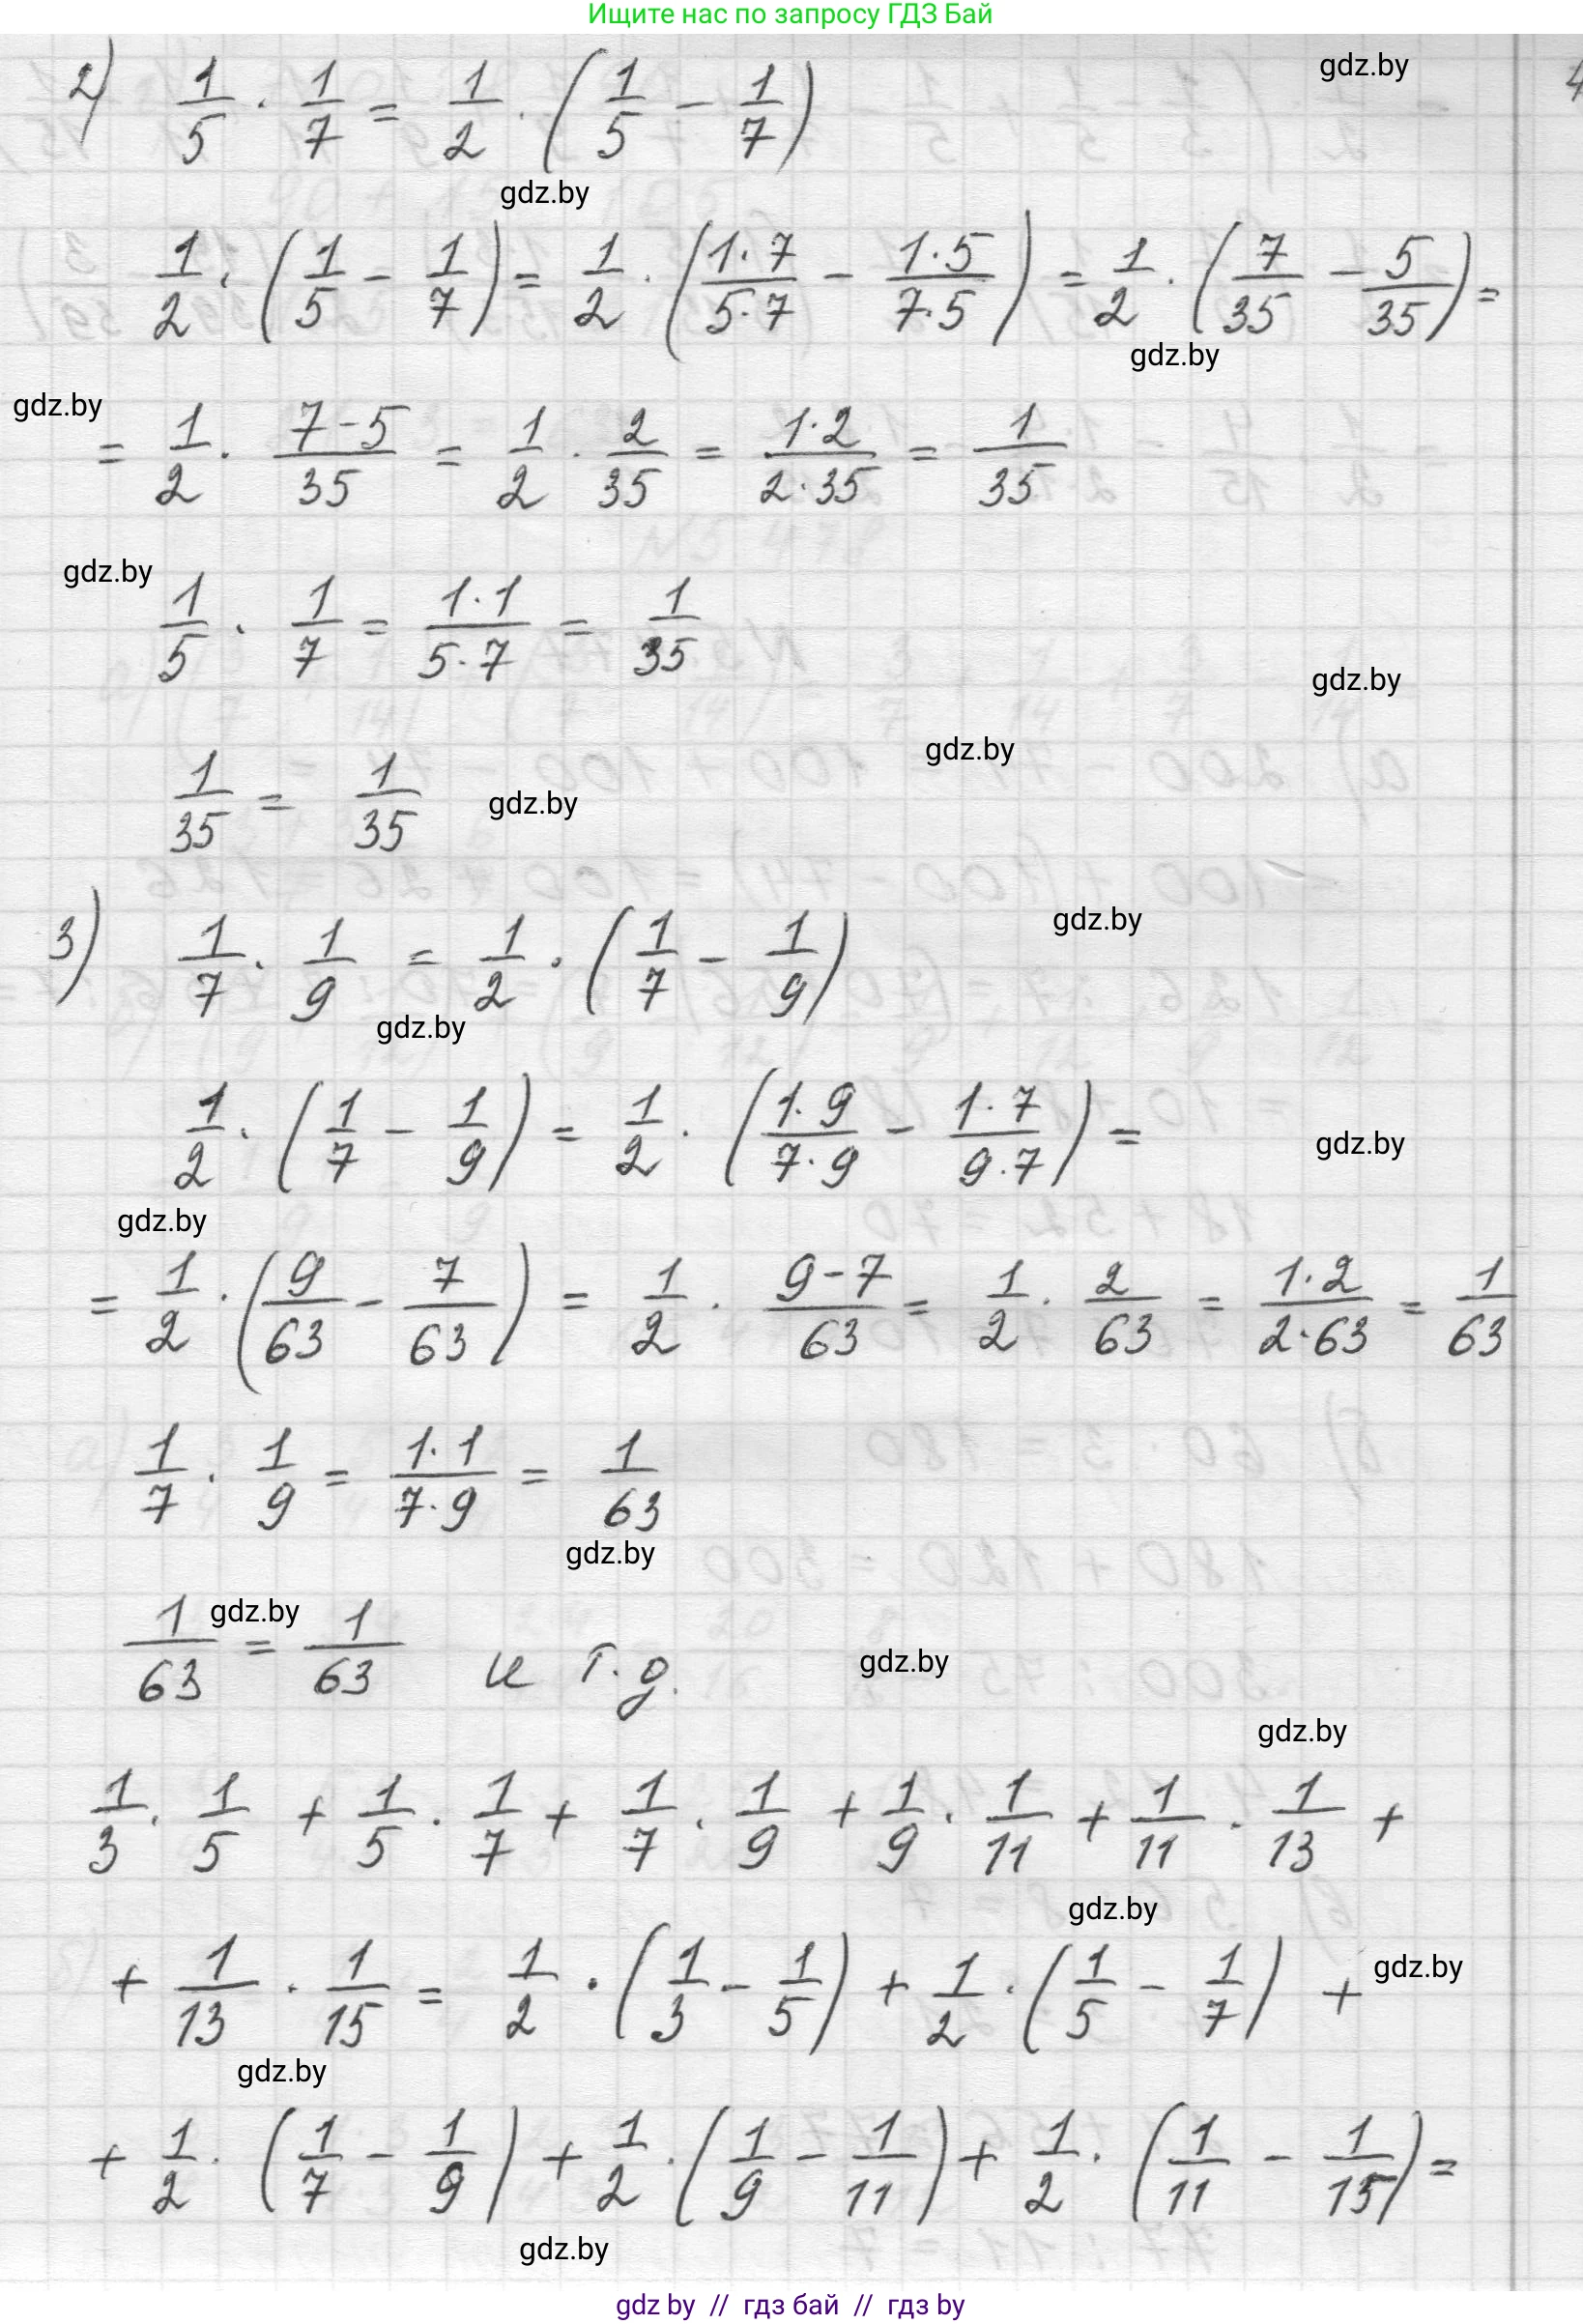 Ищите нас по запросу ГДЗ Бай
gdz.by
2) 1/5 · 1/7 = 1/2 · (1/5 − 1/7)
gdz.by
1/2 · (1/5 − 1/7) = 1/2 · (1·7/5·7 − 1·5/7·5) = 1/2 · (7/35 − 5/35) =
gdz.by
gdz.by
= 1/2 · 7−5/35 = 1/2 · 2/35 = 1·2/2·35 = 1/35
gdz.by
1/5 · 1/7 = 1·1/5·7 = 1/35
gdz.by
gdz.by
1/35 = 1/35 gdz.by
gdz.by
3) 1/7 · 1/9 = 1/2 · (1/7 − 1/9)
gdz.by
1/2 · (1/7 − 1/9) = 1/2 · (1·9/7·9 − 1·7/9·7) =
gdz.by
gdz.by
= 1/2 · (9/63 − 7/63) = 1/2 · 9−7/63 = 1/2 · 2/63 = 1·2/2·63 = 1/63
1/7 · 1/9 = 1·1/7·9 = 1/63
gdz.by
gdz.by
1/63 = 1/63 и т.д.
gdz.by
gdz.by
1/3 · 1/5 + 1/5 · 1/7 + 1/7 · 1/9 + 1/9 · 1/11 + 1/11 · 1/13 +
gdz.by
+ 1/13 · 1/15 = 1/2 · (1/3 − 1/5) + 1/2 · (1/5 − 1/7) +
gdz.by
gdz.by
+ 1/2 · (1/7 − 1/9) + 1/2 · (1/9 − 1/11) + 1/2 · (1/11 − 1/15) =
gdz.by
gdz by // гдз бай // гдз by